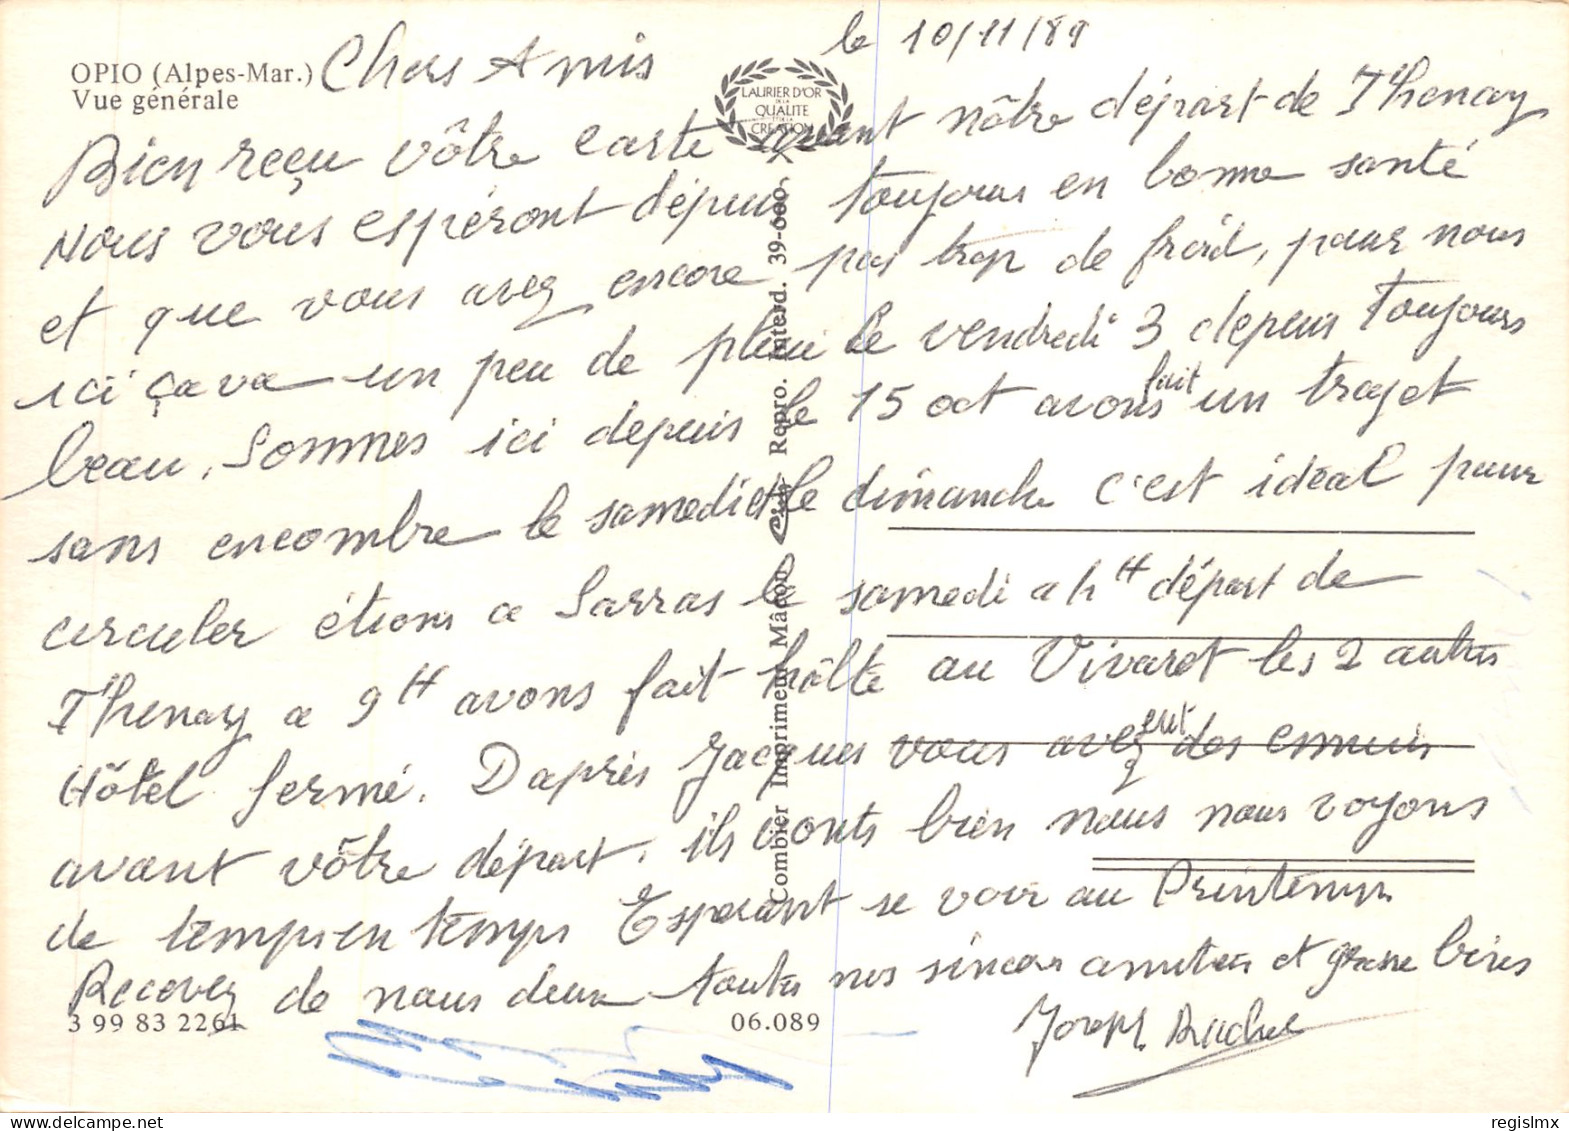 le 10/11/89
OPIO (Alpes-Mar.) Chers Amis
Vue générale
LAURIER D'OR
DE LA
QUALITE
ET DE LA
CREATION
Bien reçu vôtre carte avant nôtre départ de Thenay
Nous vous espéront depuis toujours en bonne santé
et que vous avez encore pas trop de froid, pour nous
ici ça va un peu de pluie le vendredi 3 depuis toujours
beau, Sommes ici depuis le 15 oct avons fait un trajet
sans encombre le samedi et le dimanche c'est idéal pour
circuler étions a Sarras le samedi a 14H départ de
Thenay a 9H avons fait hâlte au Vivaret les 2 autres
Hôtel fermé. Daprès Jacques vous avez eut des ennuis
avant vôtre départ, ils vonts bien nous nous voyons
de temps en temps Esperant se voir au Printemps
Recevez de nous deux toutes nos sincères amitiés et grosse bises
3 99 83 2261
06.089
Joseph Rachel
Combier Imprimeur Mâcon Cim Repro. interd. 39-600
regislmx